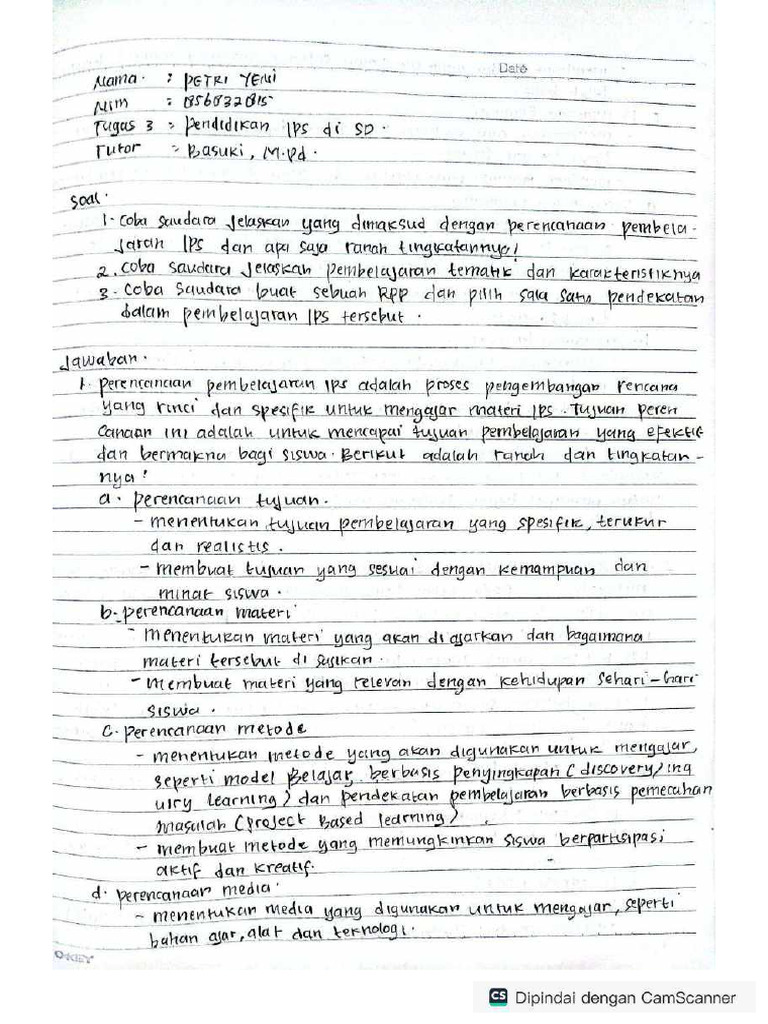 Date
Nama : PETRI YENI
Nim : 856832815
Tugas 3 : Pendidikan IPS di SD.
Tutor : Basuki, M.Pd.
Soal.
1. Coba saudara jelaskan yang dimaksud dengan perencanaan pembela-
jaran IPS dan apa saja ranah tingkatannya!
2. Coba saudara jelaskan pembelajaran tematik dan karakteristiknya
3. Coba saudara buat sebuah RPP dan pilih sala satu pendekatan
dalam pembelajaran IPS tersebut.
Jawaban.
1. perencanaan pembelajaran IPS adalah proses pengembangan rencana
yang rinci dan spesifik untuk mengajar materi IPS. Tujuan peren
canaan ini adalah untuk mencapai tujuan pembelajaran yang efektif
dan bermakna bagi siswa. Berikut adalah ranah dan tingkatan-
nya!
a. perencanaan tujuan.
- menentukan tujuan pembelajaran yang spesifik, terukur
dan realistis.
- membuat tujuan yang sesuai dengan kemampuan dan
minat siswa.
b. perencanaan materi
- menentukan materi yang akan di ajarkan dan bagaimana
materi tersebut di sajikan.
- Membuat materi yang relevan dengan kehidupan sehari-hari
siswa.
c. perencanaan metode
- menentukan metode yang akan digunakan untuk mengajar,
seperti model Belajar berbasis penyingkapan (discovery/inq
uiry learning) dan pendekatan pembelajaran berbasis pemecahan
masalah (project Based learning)
- membuat metode yang memungkinkan siswa berpartisipasi
aktif dan kreatif.
d. perencanaan media.
- menentukan media yang digunakan untuk mengajar, seperti
bahan ajar, alat dan teknologi.
OKEY
CS Dipindai dengan CamScanner